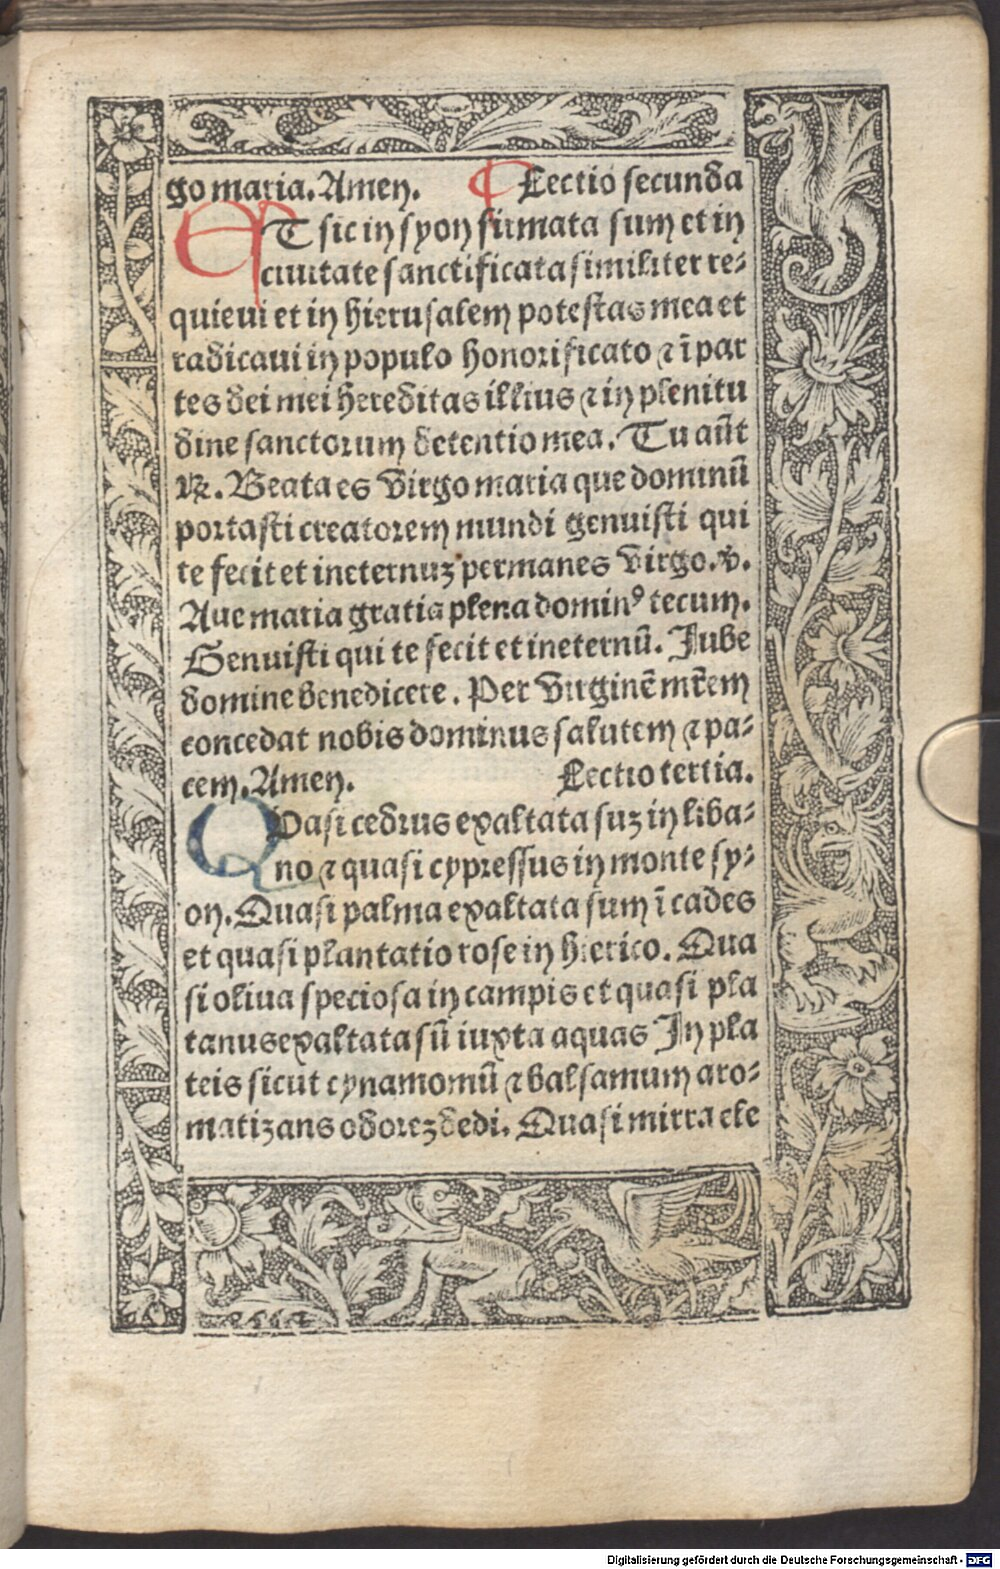 go maria. Amen. ¶ Lectio secunda
ET sic in syon firmata sum et in
ciuitate sanctificata similiter re⸗
quieui et in hierusalem potestas mea et
radicaui in populo honorificato ⁊ ī par
tes dei mei hereditas illius ⁊ in plenitu
dine sanctorum detentio mea. Tu aūt
℟. Beata es virgo maria que dominū
portasti creatorem mundi genuisti qui
te fecit et ineternuz permanes virgo. ℣.
Aue maria gratia plena dominꝰ tecum.
Genuisti qui te fecit et ineternū. Jube
domine benedicere. Per virginē mr̄em
concedat nobis dominus salutem ⁊ pa⸗
cem. Amen. Lectio tertia.
QUasi cedrus exaltata suz in liba⸗
no ⁊ quasi cypressus in monte sy⸗
on. Quasi palma exaltata sum ī cades
et quasi plantatio rose in hierico. Qua
si oliua speciosa in campis et quasi pla
tanus exaltata sū iuxta aquas In pla
teis sicut cynamomū ⁊ balsamum aro⸗
matizans odorez dedi. Quasi mirra ele
Digitalisierung gefördert durch die Deutsche Forschungsgemeinschaft - DFG